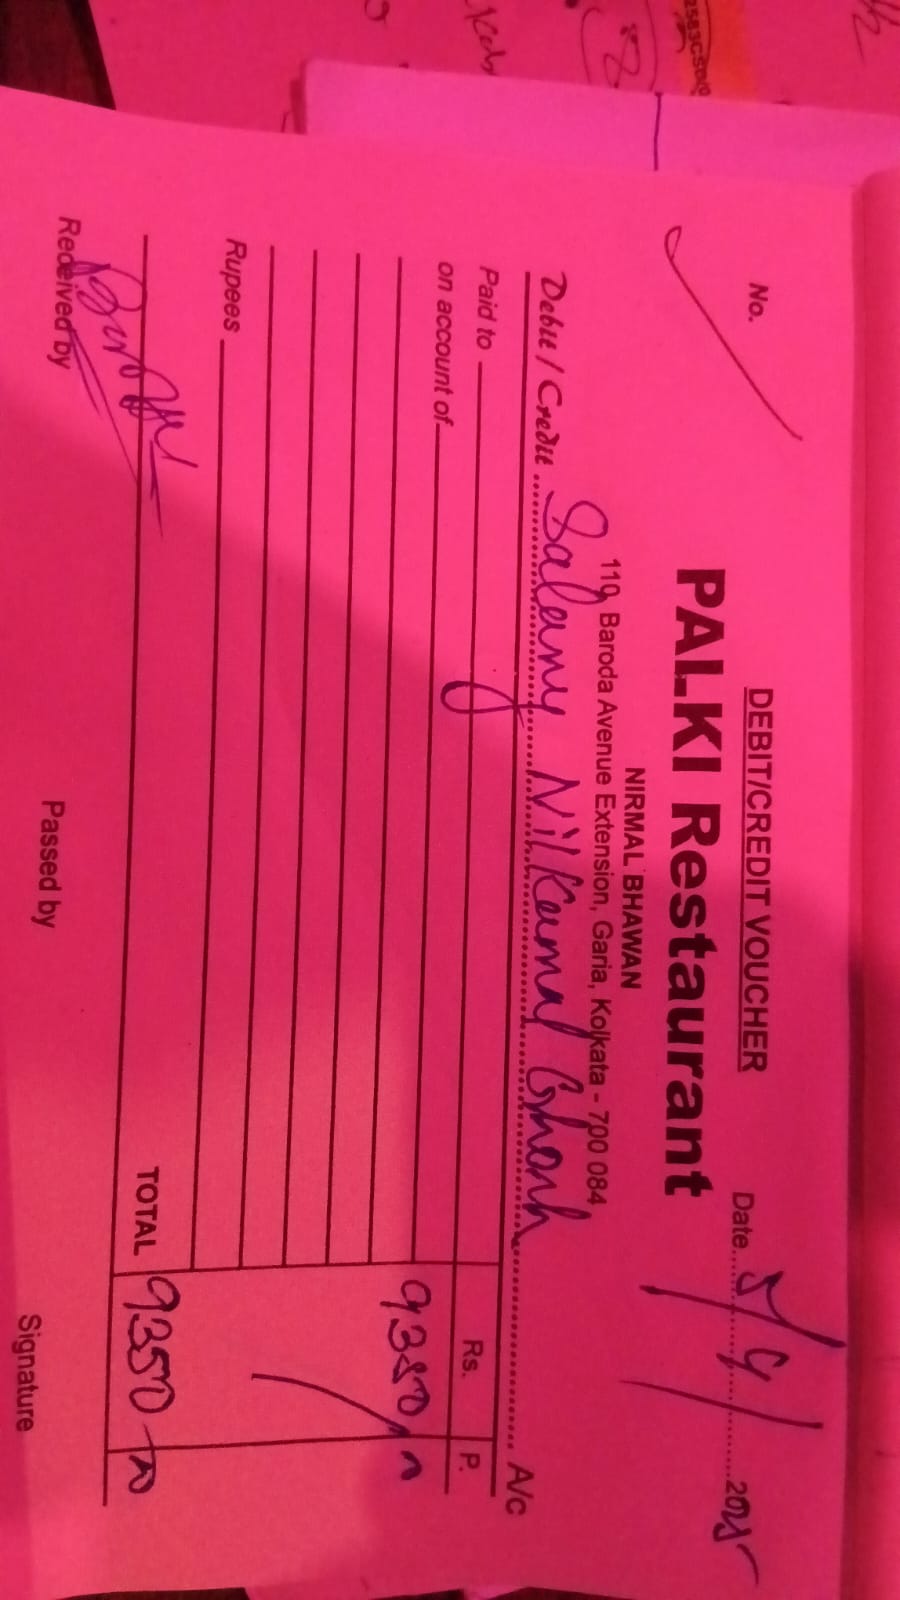 DEBIT/CREDIT VOUCHER
No.
Date 5/4/ 2025
PALKI Restaurant
NIRMAL BHAWAN
119, Baroda Avenue Extension, Garia, Kolkata - 700 084
Debit / Credit Salany Nilkamal Ghosh A/c
Paid to
Rs. P.
on account of
9350/-
Rupees
TOTAL 9350
Received by
Passed by
Signature